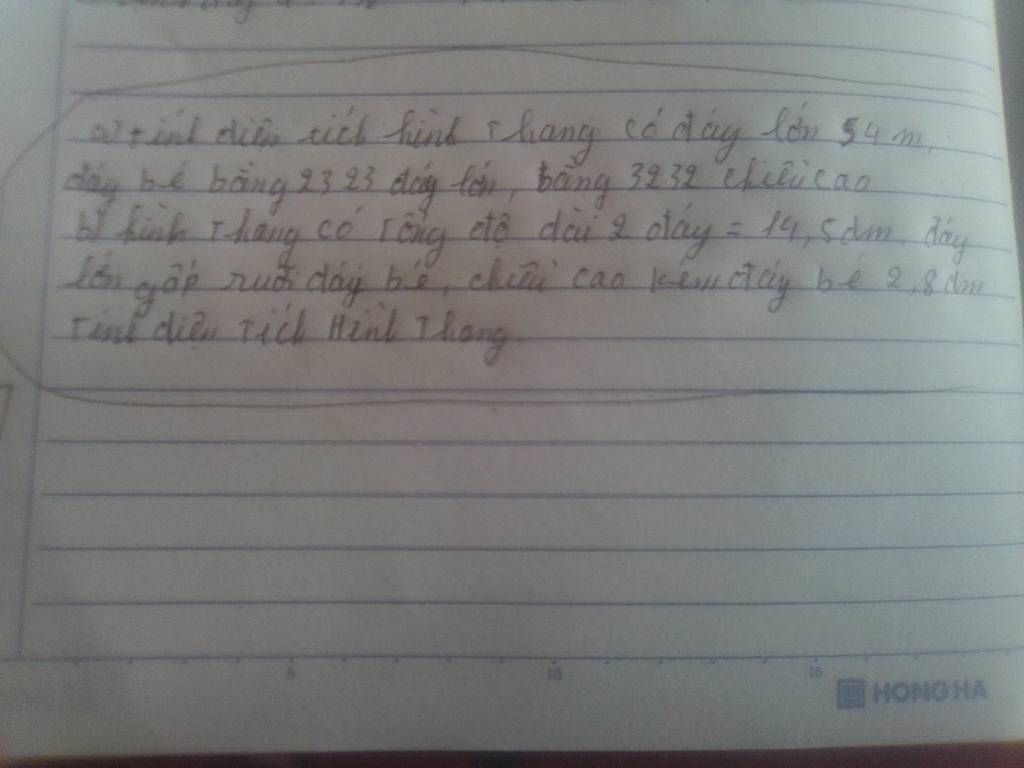 a) Tính diện tích hình Thang có đáy lớn 54 m,
đáy bé bằng 2323 đáy lớn, bằng 3232 chiều cao
b) hình Thang có Tổng độ dài 2 đáy = 14,5dm, đáy
lớn gấp rưỡi đáy bé, chiều cao kém đáy bé 2,8dm
Tính diện Tích Hình Thang.
5 10 15
HONG HA